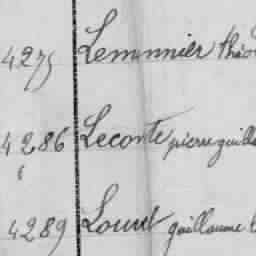 4275 Lemonnier théo
4286 Leconte pierre guilla
4289 guillaume